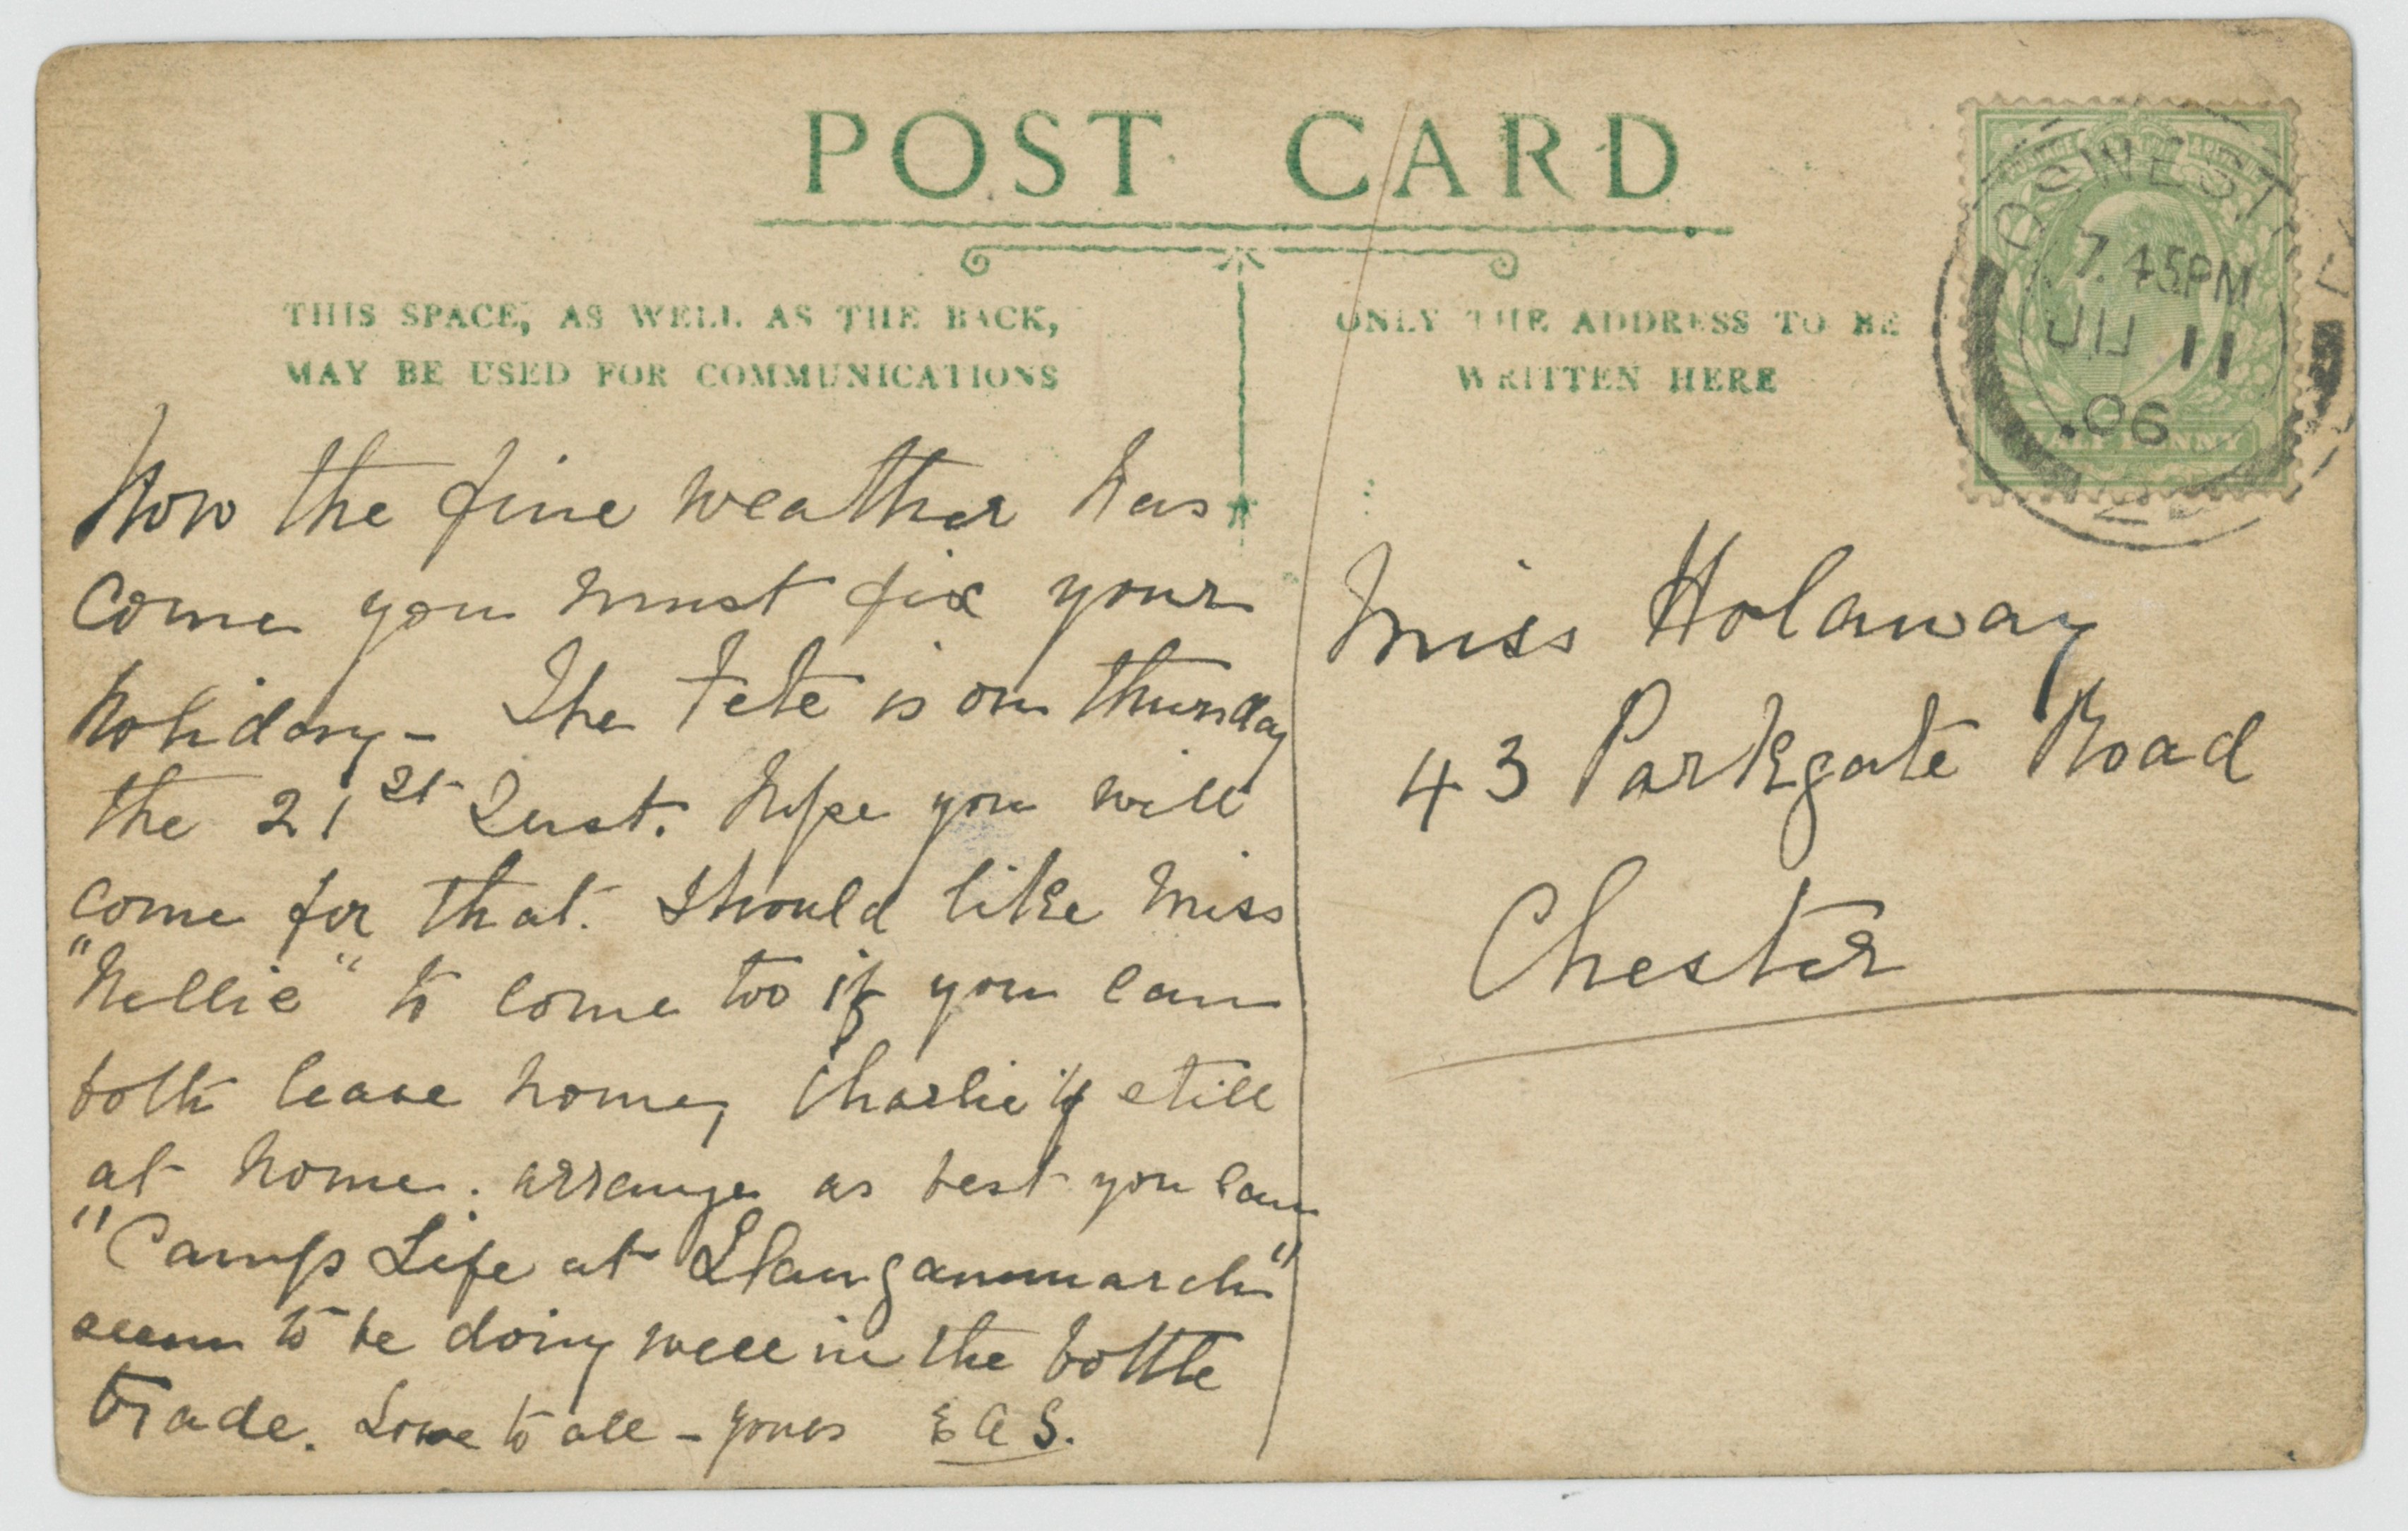 POST CARD
THIS SPACE, AS WELL AS THE BACK,
MAY BE USED FOR COMMUNICATIONS
ONLY THE ADDRESS TO BE
WRITTEN HERE
OSWESTRY
7.45PM
JU 11
06
HALFPENNY
Now the fine weather has
come you must fix your
holiday - The Fete is on Thursday
the 21st Inst. hope you will
come for that. Should like Miss
"Nellie" to come too if you can
both leave home, Charlie if still
at home. arrange as best you can
"Camp Life at Llangammarch"
seem to be doing well in the bottle
trade. Love to all - yours E A S.
Miss Holaway
43 Parkgate Road
Chester